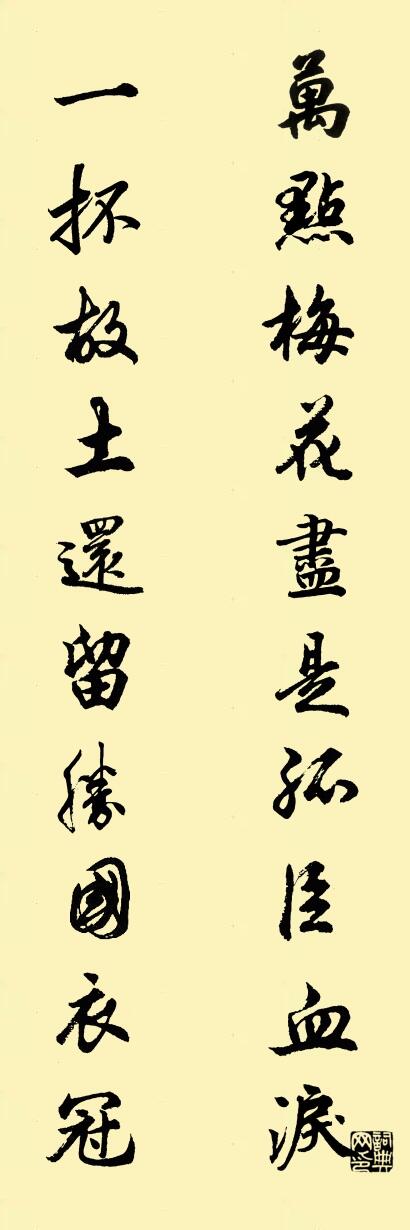 萬點梅花盡是孤臣血淚
一抔故土還留勝國衣冠
詞典網印